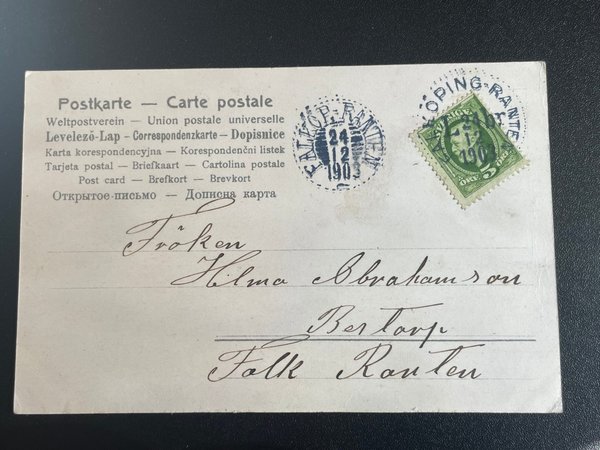 Postkarte — Carte postale
Weltpostverein — Union postale universelle
Levelező-Lap - Correspondenzkarte - Dopisnice
Karta korespondencyjna — Korespondenční listek
Tarjeta postal — Briefkaart — Cartolina postale
Post card — Brefkort — Brevkort
Открытое-письмо — Дописна карта
FALKÖP.-RANTEN
24
12
1903
FALKÖPING-RANTEN
24
12
1903
5
Fröken
Hilma Abrahamson
Bestorp
Falk Ranten